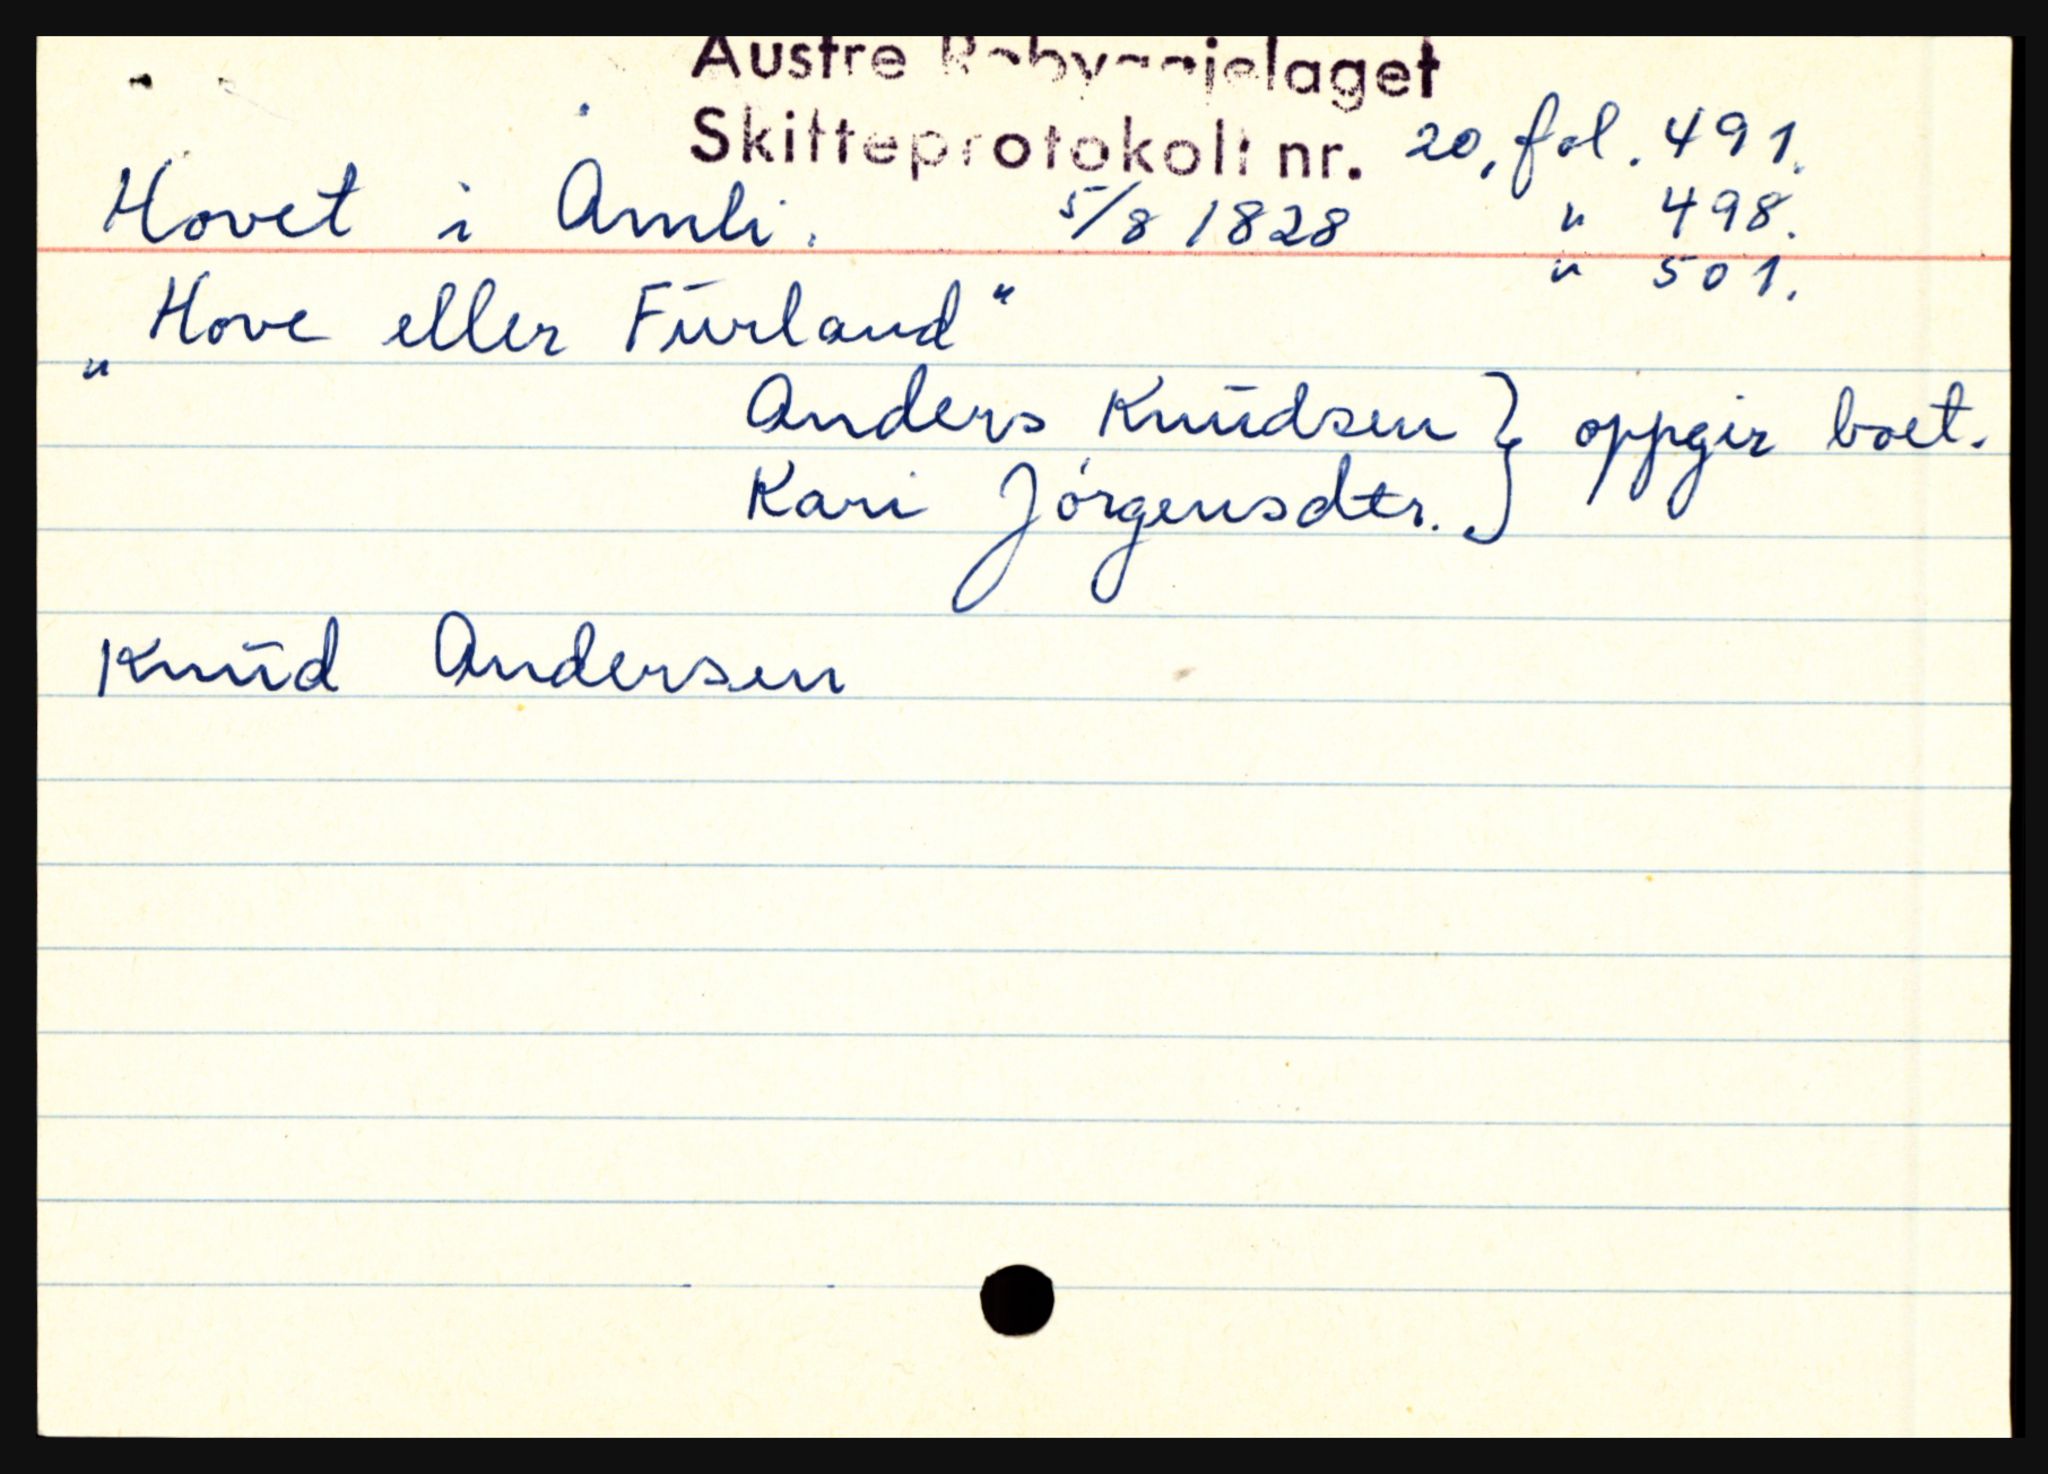 Austre Råbyggjelaget
Skifteprotokoll nr. 20, fol. 491.
Hovet i Åmli. 5/8 1828 " 498.
" 501.
„Hove eller Furland"
Anders Knudsen } oppgir boet.
Kari Jörgensdtr.
Knud Andersen